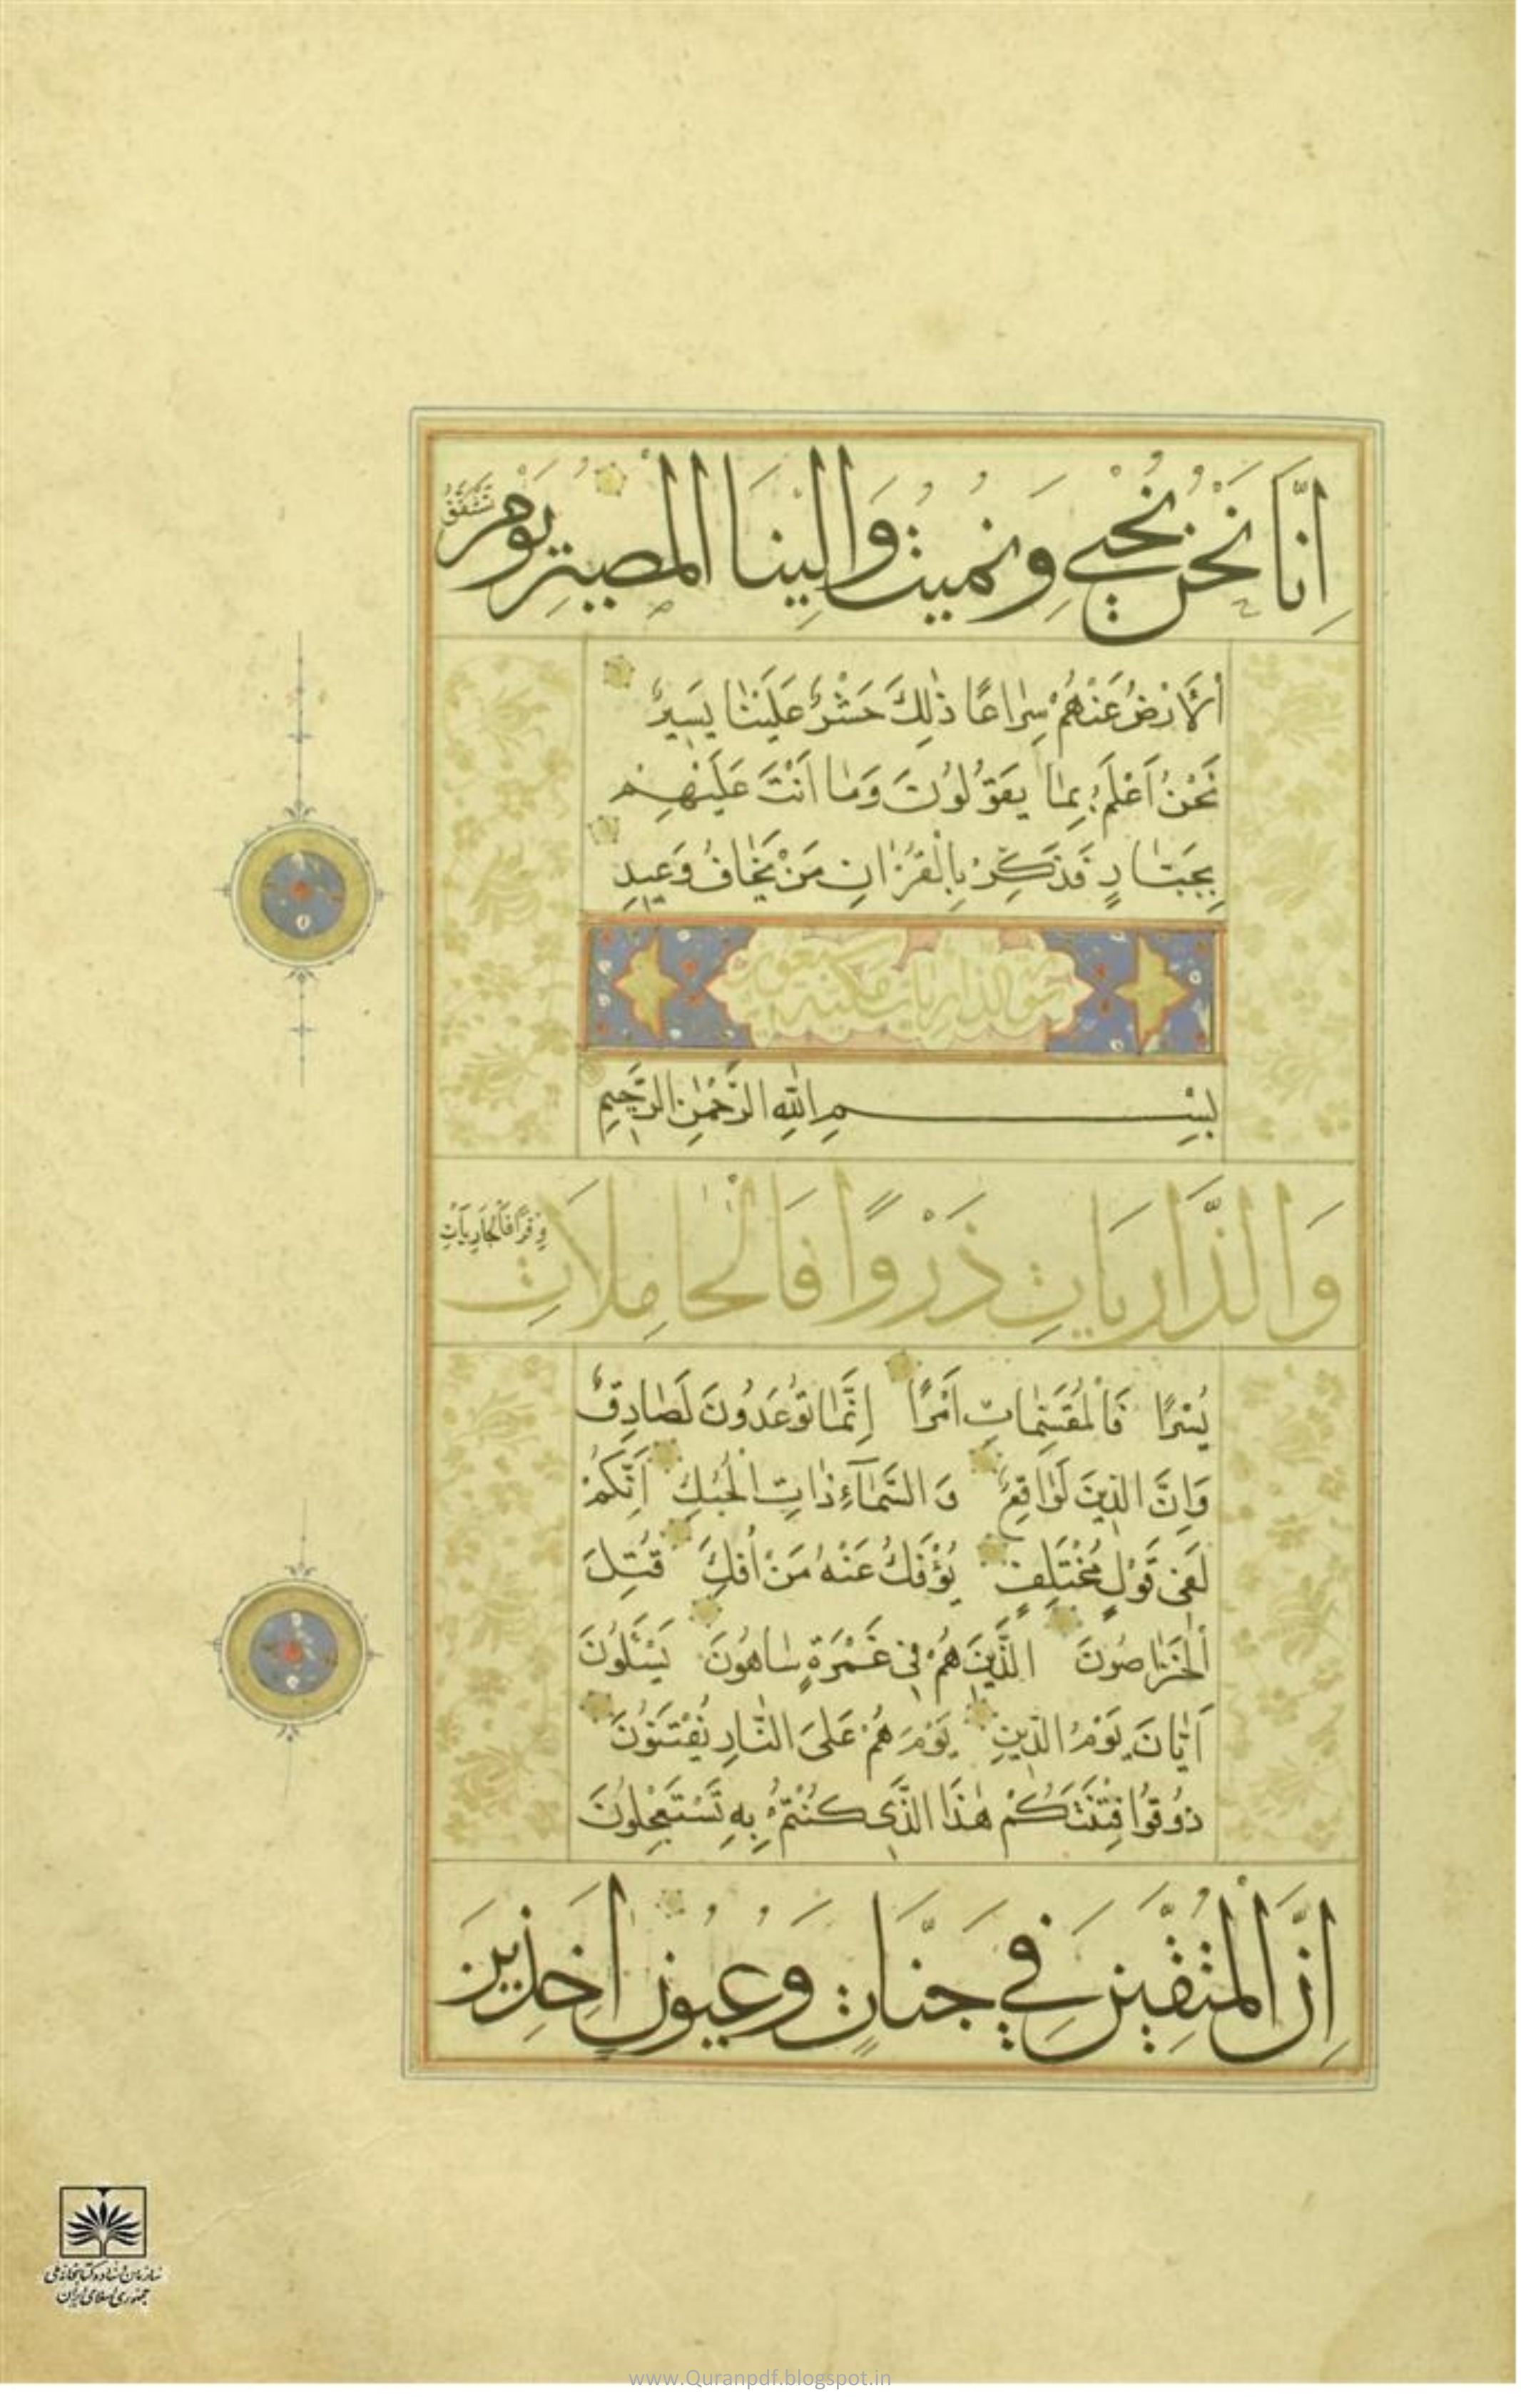 اِنَّا نَحْنُ نُحْيِي وَنُمِيتُ وَاِلَيْنَا الْمَصِيرُ يَوْمَ تَشَقَّقُ
اْلاَرْضُ عَنْهُمْ سِرٰاعًا ذٰلِكَ حَشْرٌ عَلَيْنٰا يَسِيرٌ
نَحْنُ اَعْلَمُ بِمٰا يَقُولُونَ وَمٰا اَنْتَ عَلَيْهِمْ
بِجَبّٰارٍ فَذَكِّرْ بِالْقُرْاٰنِ مَنْ يَخٰافُ وَعِيدِ
سورة الذاريات مكية
بِسْمِ اللّٰهِ الرَّحْمٰنِ الرَّحِيمِ
وَالذَّارِيَاتِ ذَرْوًا فَالْحَامِلَاتِ وِقْرًا فَالْجَارِيَاتِ
يُسْرًا فَالْمُقَسِّمٰاتِ اَمْرًا اِنَّمٰا تُوعَدُونَ لَصٰادِقٌ
وَاِنَّ الدِّينَ لَوٰاقِعٌ وَالسَّمٰآءِ ذٰاتِ الْحُبُكِ اِنَّكُمْ
لَفِى قَوْلٍ مُخْتَلِفٍ يُؤْفَكُ عَنْهُ مَنْ اُفِكَ قُتِلَ
الْخَرّٰاصُونَ الَّذِينَ هُمْ فِى غَمْرَةٍ سٰاهُونَ يَسْئَلُونَ
اَيّٰانَ يَوْمُ الدِّينِ يَوْمَ هُمْ عَلَى النّٰارِ يُفْتَنُونَ
ذُوقُوا فِتْنَتَكُمْ هٰذَا الَّذِى كُنْتُمْ بِهِ تَسْتَعْجِلُونَ
اِنَّ الْمُتَّقِينَ فِي جَنَّاتٍ وَعُيُونٍ اٰخِذِينَ
سازمان اسناد و کتابخانه ملی
جمهوری اسلامی ایران
www.Quranpdf.blogspot.in